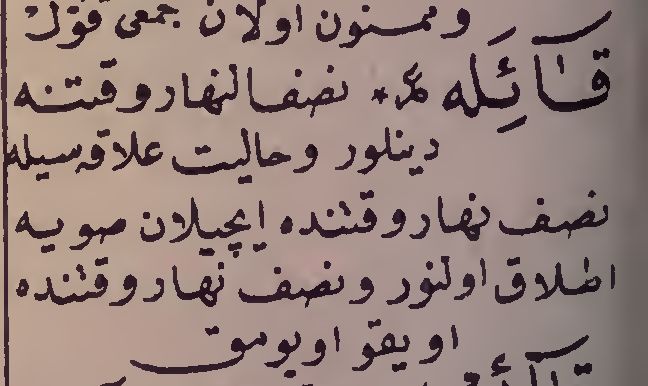 وممنون اولان جمعى قول
قَآئِلَه * نصف النهار وقتنه
دينلور وحاليت علاقه سيله
نصف نهار وقتنده ايچيلان صويه
اطلاق اولنور ونصف نهار وقتنده
اويقو اويومق